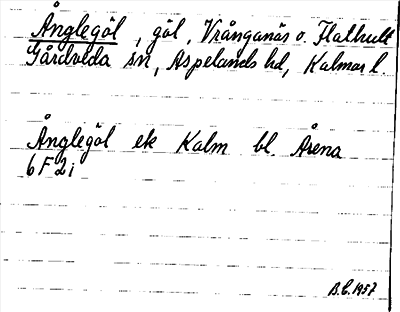 Ånglegöl, göl, Vrånganäs o. Flathult
Gårdveda sn, Aspelands hd, Kalmar l.
Ånglegöl ek Kalm bl. Årena
6 F 2 i
B.E. 1957